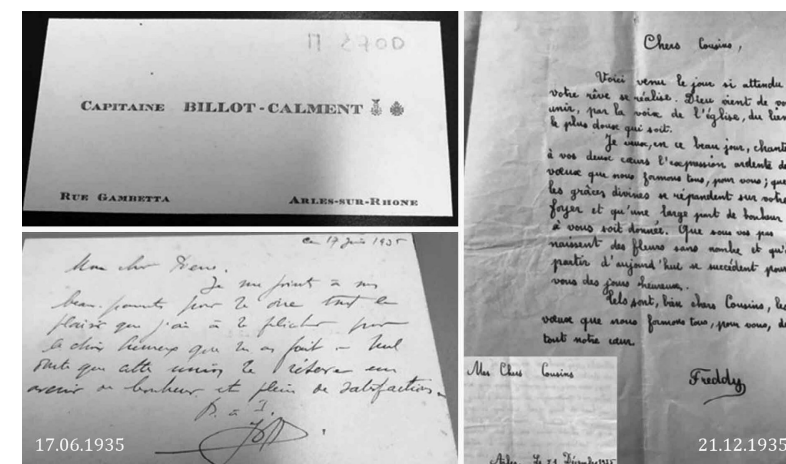 П 3700
CAPITAINE BILLOT-CALMENT
RUE GAMBETTA ARLES-SUR-RHONE
ce 17 Juin 1935
Mon cher Pierre,
Je me joins à mes
beaux-parents pour te dire tout le
plaisir que j'ai à te féliciter pour
le choix heureux que tu as fait
que cette union te réserve un
avenir de bonheur et plein de satisfactions
17.06.1935
Chers Cousins,
Voici venu le jour si attendu
votre rêve se réalise. Dieu vient de vo
unir, par la voix de l'église, du lien
le plus doux qui soit.
Je veux, en ce beau jour, chante
à vos deux cœurs l'expression ardente de
vœux que nous formons tous, pour vous ; que
les grâces divines se répandent sur votre
foyer et qu'une large part de bonheur
à vous soit donnée. Que sous vos pas
naissent des fleurs sans nombre et qu'à
partir d'aujourd'hui se succèdent pour
vous des jours heureux.
Tels sont, bien chers Cousins, les
vœux que nous formons tous, pour vous, de
tout notre cœur.
Freddy
Mes Chers Cousins
Arles, le 21 Décembre 1935
21.12.1935